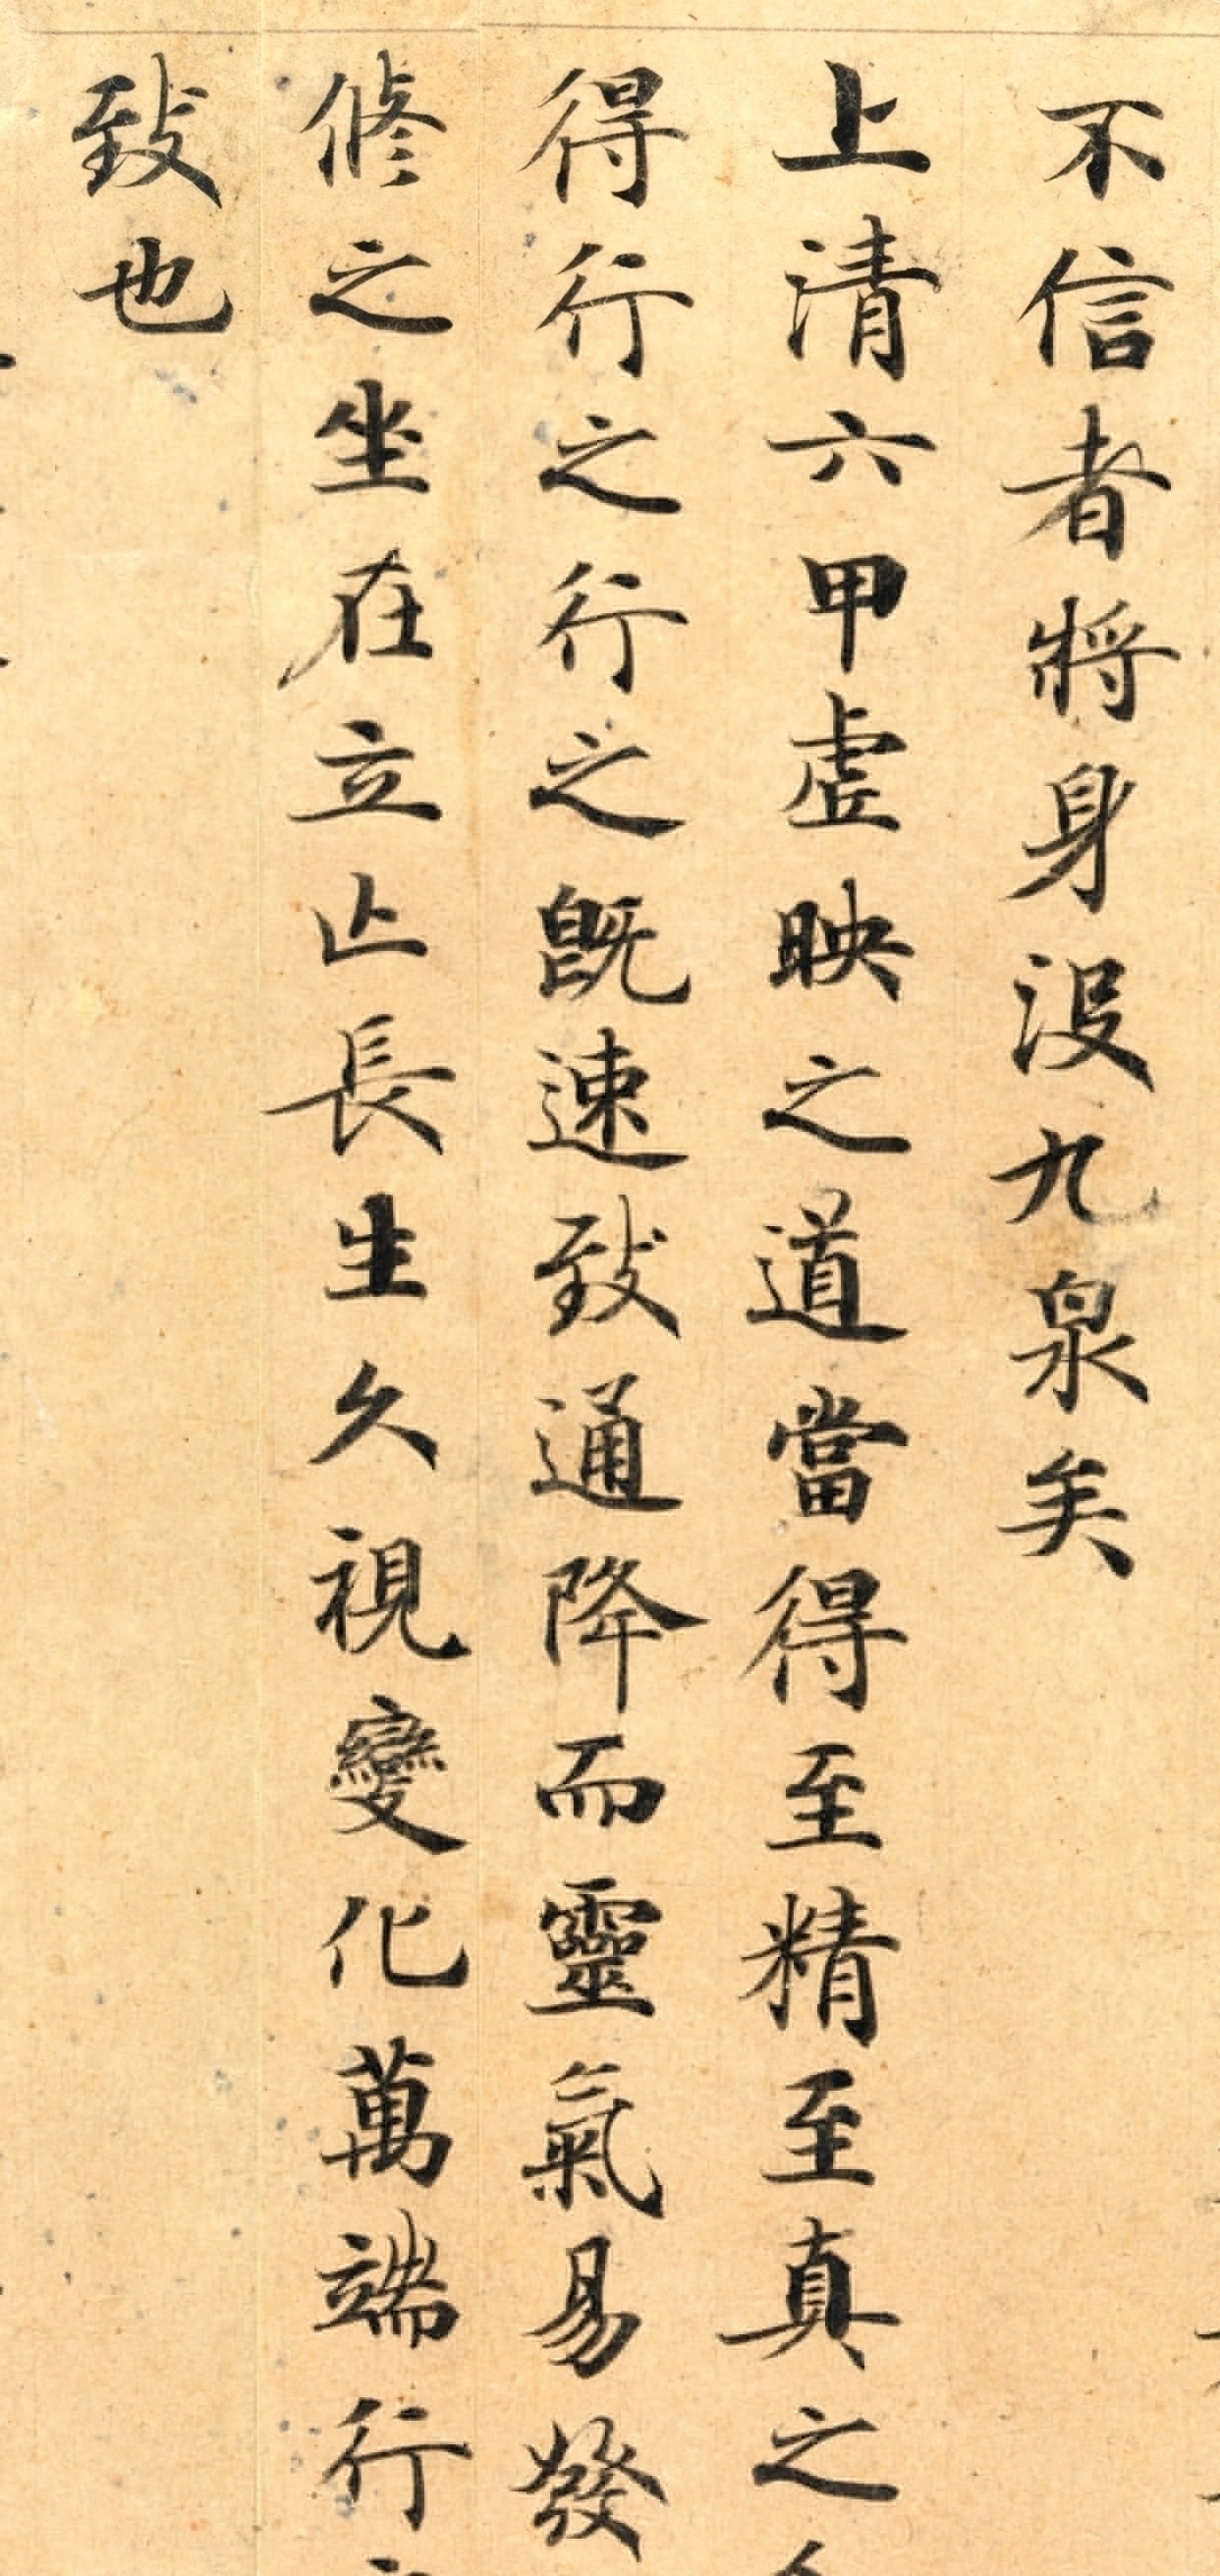 不信者將身没九泉矣
上清六甲虛映之道當得至精至真之
得行之行之既速致通降而靈氣易發
修之坐在立亡長生久視變化萬端行
致也